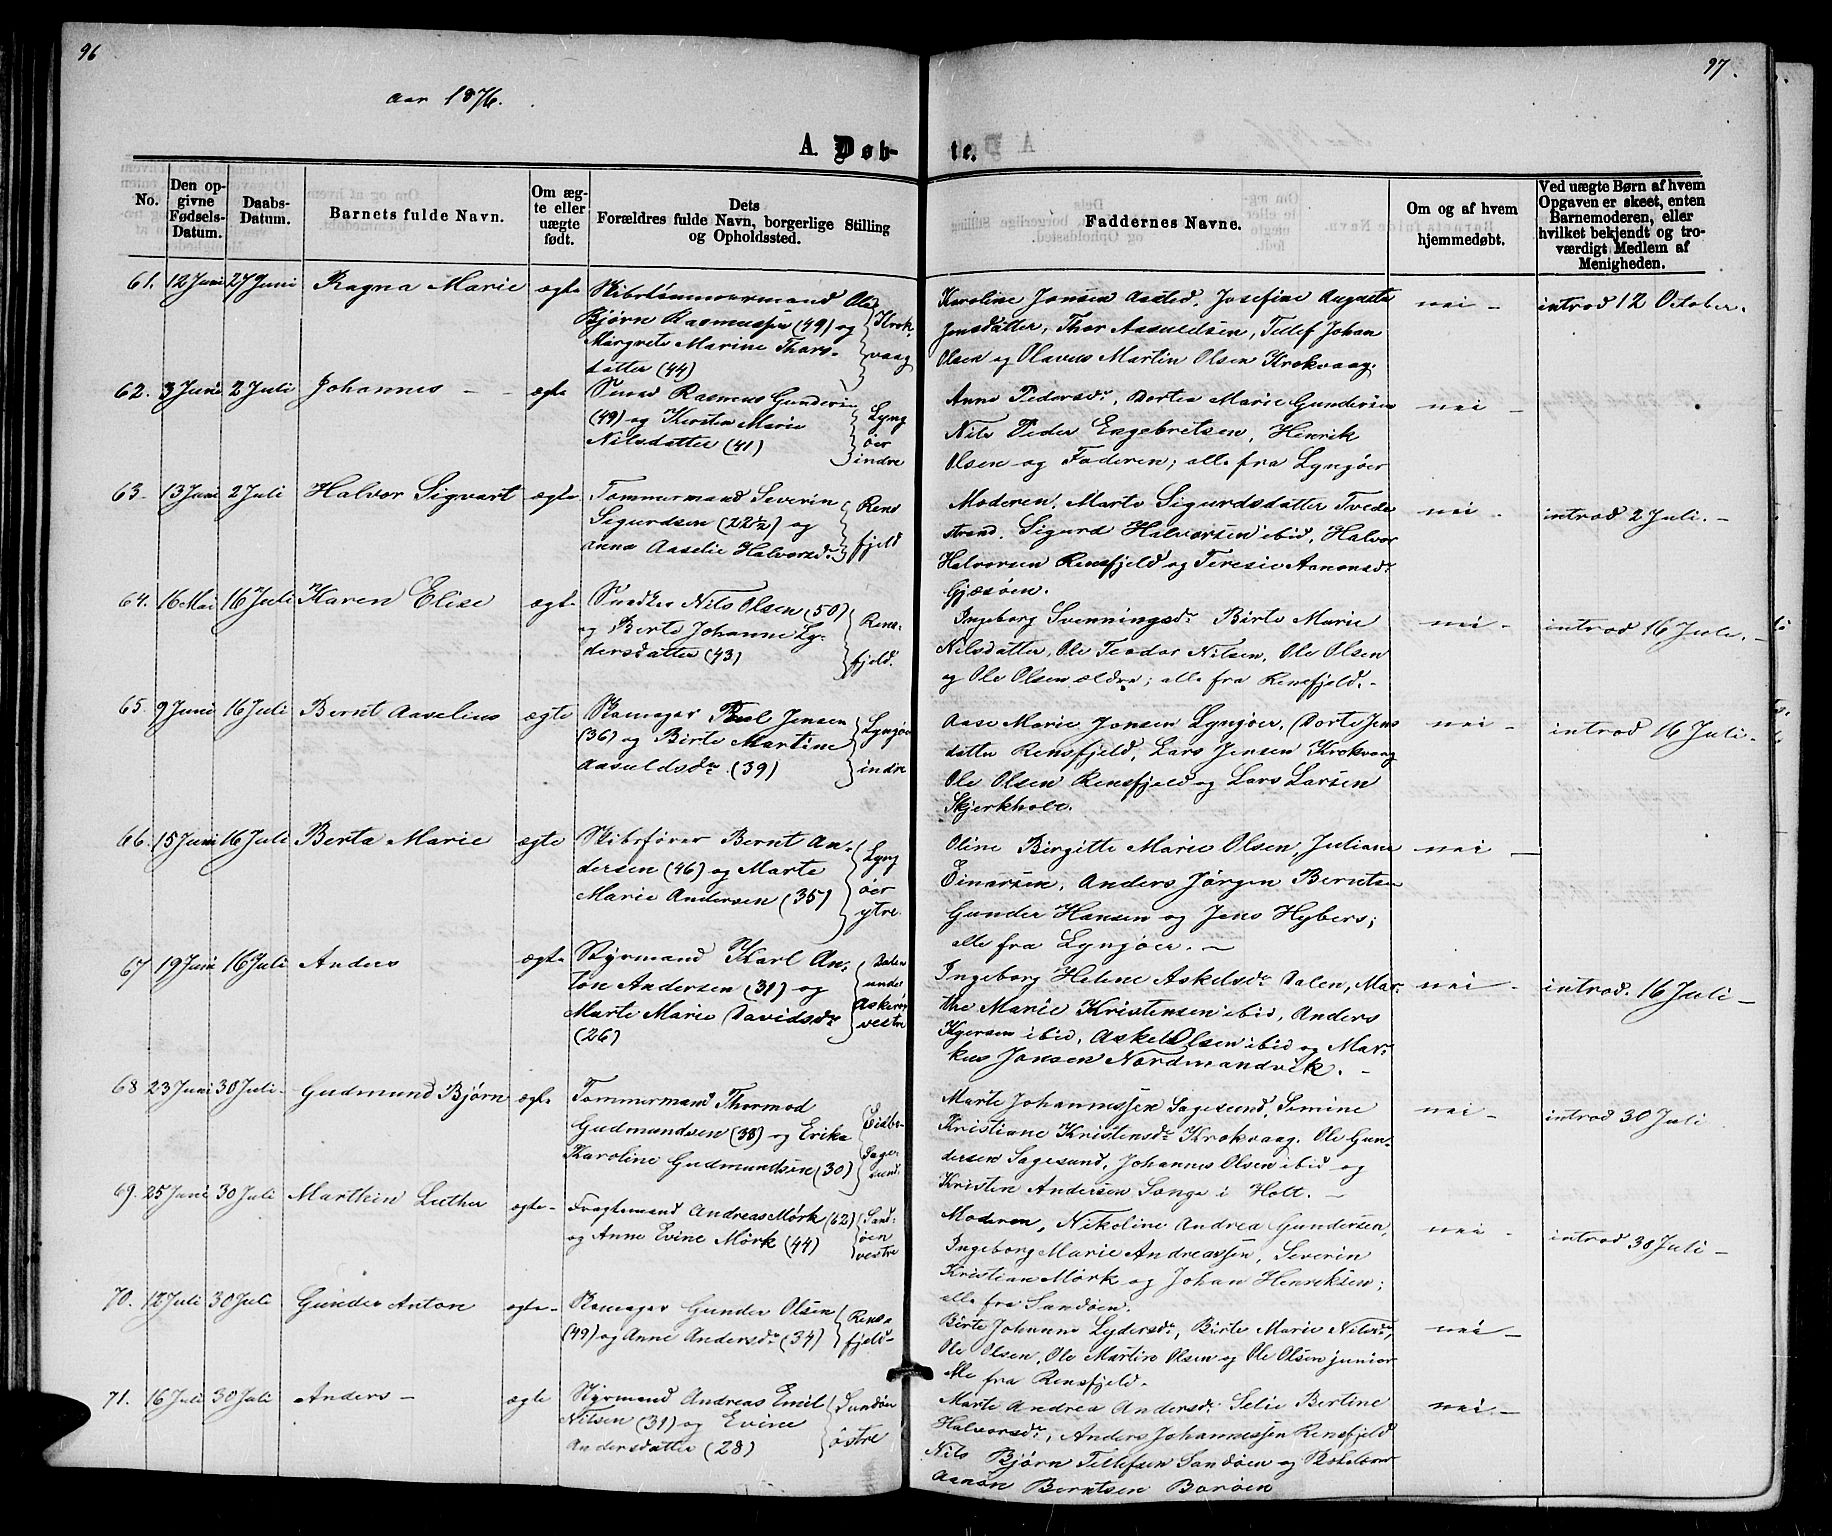 96
aar 1876.
A. Døb-
No.
Den opgivne Fødsels-Datum.
Daabs-Datum.
Barnets fulde Navn.
Om ægte eller uægte født.
Dets Forældres fulde Navn, borgerlige Stilling og Opholdssted.
61. 12 Juni 27 Juni Ragna Marie ægte Skibstømmermand Ole
Bjørn Rasmussen (49) og
Margrete Marine Thors-
datter (44)
Krok-
vaag
62. 3 Juni 2 Juli Johannes - ægte Smed Rasmus Gunders
(49) og Kirsten Marie
Nilsdatter (41)
Lyng
öer
indre
63. 13 Juni 2 Juli Halvor Sigvart ægte Tømmermand Severin
Sigurdsen (22½) og
Anna Aaselie Halvorsdr.
Rens
fjeld
64. 16 Mai 16 Juli Karen Elise ægte Snedker Nils Olsen (50)
og Berte Johanne Ly-
dersdatter (43)
Rens-
fjeld.
65. 9 Juni 16 Juli Bernt Aaselius ægte Skomager Poul Jensen
(36) og Birte Martine
Aasuldsdr. (39)
Lyngöer
indre
66. 15 Juni 16 Juli Berta Marie ægte Skibsfører Bernt An-
dersen (46) og Marte
Marie Andersen (35)
Lyng
öer
ytre
67 19 Juni 16 Juli Anders ægte Styrmand Karl An-
ton Andersen (31) og
Marte Marie Davidsdr.
(26)
Dalen
under
Askerøe
vestre
68 23 Juni 30 Juli- Gudmund Bjørn ægte Tømmermand Thormod
Gudmundsen (38) og Erika
Karoline Gudmundsen (30)
Eidbo-
Sage-
sund.
69. 25 Juni 30 Juli Marthin Luther ægte- Fragtemand Andreas Mørk (62)
og Anne Evine Mørk (44)
Sand-
öen
vestre
70. 12 Juli 30 Juli Gunder Anton ægte- Skomager Gunder Olsen
(49) og Anne Andersdr. (34)
Rens-
fjeld-
71. 16 Juli 30 Juli Anders - ægte Styrmand Andreas Emil
Nilsen (31) og Evine
Andersdatter (28)
Sandöen
östre
97.
te.
Faddernes Navne.
Om og af hvem hjemmedøbt.
Ved uægte Børn af hvem Opgaven er skeet, enten Barnemoderen, eller hvilket bekjendt og troværdigt Medlem af Menigheden.
Karoline Jonsen Aasted, Josefine Augusta nei - introd 12 October.
Jensdatter, Thor Aasuldsen, Tellef Johan
Olsen og Olaves Martin Olsen Krokvaag.
Anne Pedersdr, Dortea Marie Gundersen nei -
Nils Peder Engebretsen, Henrik
Olsen og Faderen; alle fra Lyngöer
Moderen, Marte Sigurdsdatter Tvede- nei - introd 2 Juli. -
strand. Sigurd Halvorsen ibid, Halvor
Halvorsen Rensfjeld og Teresie Aanonsdr.
Gjæsöen.
Ingeborg Svenningsdr. Birte Marie nei - introd 16 Juli. -
Nilsdatter, Ole Teodor Nilsen, Ole Olsen
og Ole Olsen ældre; alle fra Rensfjeld. -
Aase Marie Jonsen Lyngöer, Dorte Jens nei - introd 16 Juli-
datter Rensfjeld, Lars Jensen Krokvaag
Ole Olsen Rensfjeld og Lars Larsen
Skjerkholt.
Oline Birgitte Marie Olsen, Juliane nei -
Einarsen, Anders Jörgen Berntsen
Gunder Hansen og Jens Hybers;
alle fra Lyngöer. -
Ingeborg Helene Askelsdr Dalen, Mar- nei - introd. 16 Juli -
the Marie Kristensen ibid, Anders
Kjersen ibid, Askel Olsen ibid og Mar-
kus Jansen Nordmandvik. -
Marte Johannessen Sagesund, Semine nei - introd 30 Juli
Kristiane Kristensdr. Krokvaag. Ole Gun-
dersen Sagesund, Johannes Olsen ibid og
Kristen Andersen Songe i Holt. -
Moderen, Nikoline Andrea Gundersen, nei - introd 30 Juli -
Ingeborg Marie Andreassen, Severin
Kristian Mörk og Johan Henriksen;
alle fra Sandöen.
Birte Johanne Lydersdr, Birte Marie Nilsdr, nei -
Ole Olsen, Ole Martin Olsen og Ole Olsen junior
Alle fra Rensfjeld.
Marte Andrea Andersdr. Selie Bertine nei. -
Halvorsdr, Anders Johannessen Rensfjeld
Nils Bjørn Tellefsen Sandöen og
Aanon Berntsen Boröen